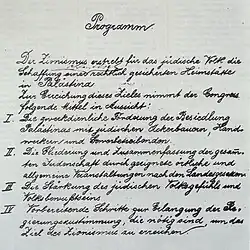 Programm
Der Zionismus erstrebt für das jüdische Volk die
Schaffung einer rechtlich gesicherten Heimstätte
in Palästina
Zur Erreichung dieses Zieles nimmt der Congress
folgende Mittel in Aussicht:
I. Die zweckdienliche Förderung der Besiedlung
Palästinas mit jüdischen Ackerbauern, Hand
werkern und Gewerbetreibenden.
II. Die Gliederung und Zusammenfassung der gesam
ten Judenschaft durch geeignete örtliche und
allgemeine Veranstaltungen nach den Landesgesetzen
III. Die Stärkung des jüdischen Volksgefühls und
Volksbewusstseins
IV. Vorbereitende Schritte zur Erlangung der Re
gierungszustimmung, die nötig sind, um das
Ziel des Zionismus zu erreichen.